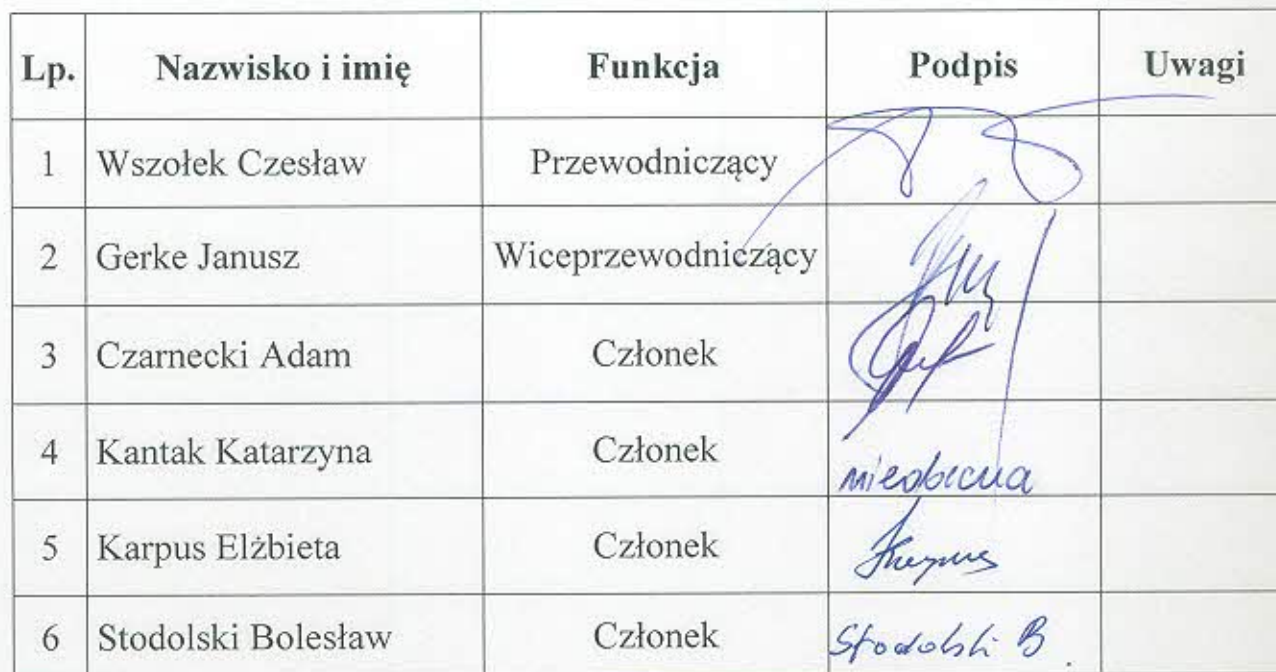 Lp. Nazwisko i imię Funkcja Podpis Uwagi
1 Wszołek Czesław Przewodniczący
2 Gerke Janusz Wiceprzewodniczący
3 Czarnecki Adam Członek
4 Kantak Katarzyna Członek nieobecna
5 Karpus Elżbieta Członek Karpus
6 Stodolski Bolesław Członek Stodolski B